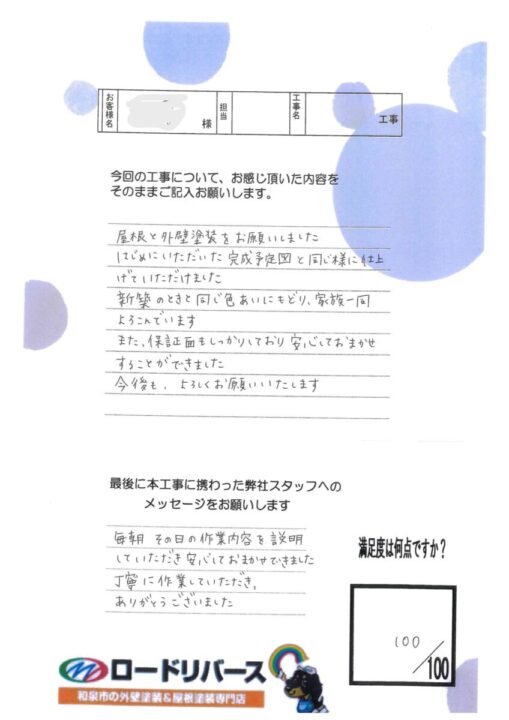 お客様名 様 担当 工事名 工事
今回の工事について、お感じ頂いた内容を
そのままご記入お願いします。
屋根と外壁塗装をお願いしました
はじめにいただいた完成予定図と同じ様に仕上
げていただけました
新築のときと同じ色あいにもどり、家族一同
よろこんでいます
また、保証面もしっかりしており安心しておまかせ
することができました
今後も、よろしくお願いいたします
最後に本工事に携わった弊社スタッフへの
メッセージをお願いします
毎朝 その日の作業内容を説明
していただき安心しておまかせできました
丁寧に作業していただき、
ありがとうございました
満足度は何点ですか?
100/100
ロードリバース
和泉市の外壁塗装&屋根塗装専門店